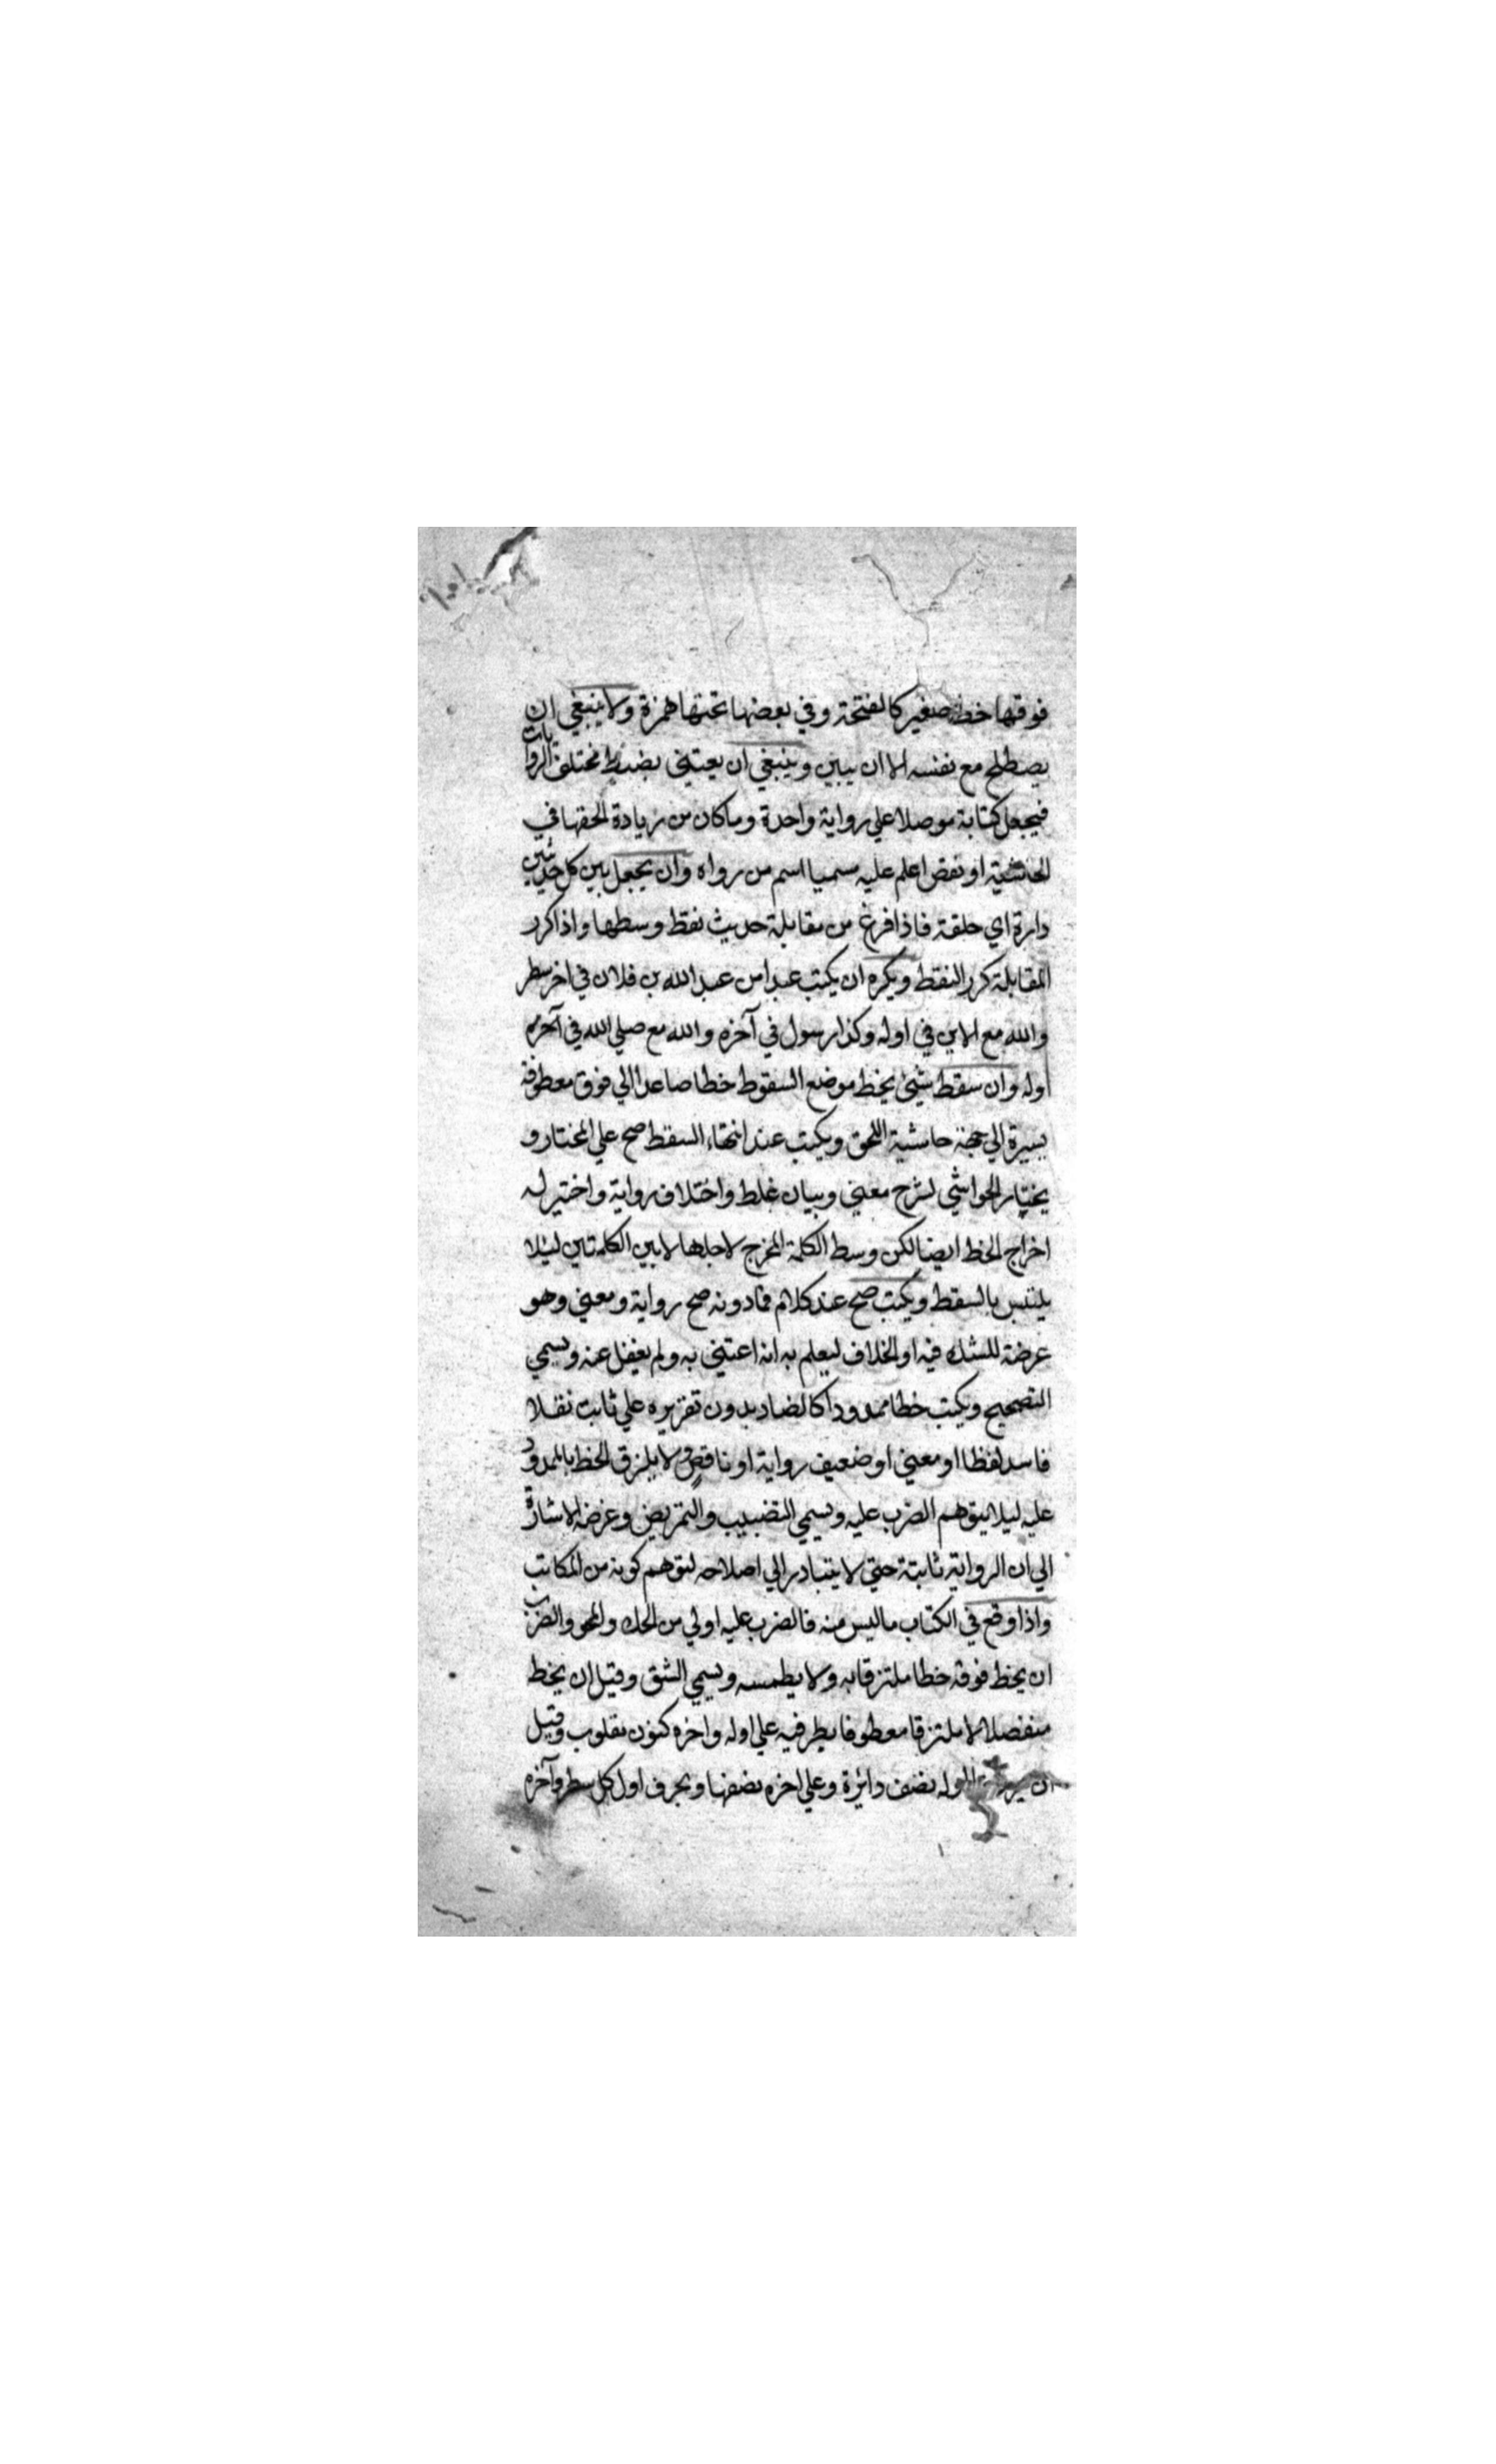 فوقها خط صغير كالفتحة وفي بعضها تحتها همزة ولا ينبغي ان
يصطلح مع نفسه الا ان يبين وينبغي ان يعتني بضبط مختلف الروايات
فيجعل كتابة موصلا علي رواية واحدة وما كان من زيادة الحقها في
الحاشية او نقص اعلم عليه مسميا اسم من رواه وان يجعل بين كل حديثين
دارة اي حلقة فاذا فرغ من مقابلة حديث نقط وسطها واذا كرر
المقابلة كرر النقط ويكره ان يكتب عبد من عبد الله بن فلان في اخر سطر
والله مع الابن في اوله وكذا رسول في آخره والله مع صلي الله في آخره
اوله وان سقط شيئ يخط موضع السقوط خطا صاعدا الي فوق معطوفة
يسيرة الي جهة حاشية اللحق ويكتب عند انتهاء السقط صح علي المختار و
يختار الحواشي لشرح معني وبيان غلط واختلاف رواية واختير له
اخراج الخط ايضا لكن وسط الكلمة المخرج لاجلها لا بين الكلمتين ليئلا
يلتبس بالسقط ويكتب صح عند كلام فمادونه صح رواية ومعني وهو
عرضة للشك فيه او الخلاف ليعلم به انه اعتني به ولم يغفل عنه ويسمي
التصحيح ويكتب خطا ممدودا كالضاد بدون تقريره علي ثابت نقلا
فاسد لفظا او معني او ضعيف رواية او ناقص ولا يلزق الخط بالممدود
عليه ليلا يتوهم الضرب عليه ويسمي التضبيب والتمريض وغرضه الاشارة
الي ان الرواية ثابتة حتي لا يتبادر الي اصلاحه لتوهم كونه من المكاتب
واذا وقع في الكتاب ما ليس منه فالضرب عليه اولي من الحك والمحو والضرب
ان يخط فوقه خطا ملتزقا به ولا يطمسه ويسمي الشق وقيل ان يخط
منفصلا لا ملتزقا معطوفا بطرفيه علي اوله واخره كنون مقلوب وقيل
ان اوله نصف دائرة وعلي اخره نصفها ويحرف اول كل سطر وآخره